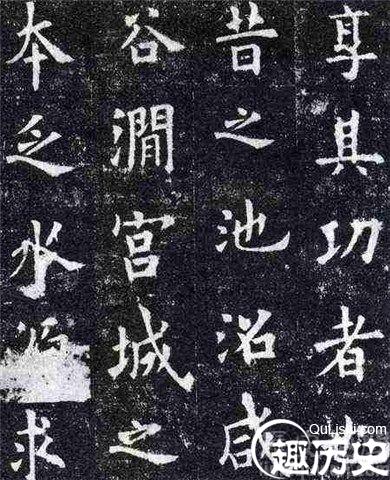 享其功者
昔之池沼咸
谷澗宮城之
本乏水求
QuLiShi.com
趣历史